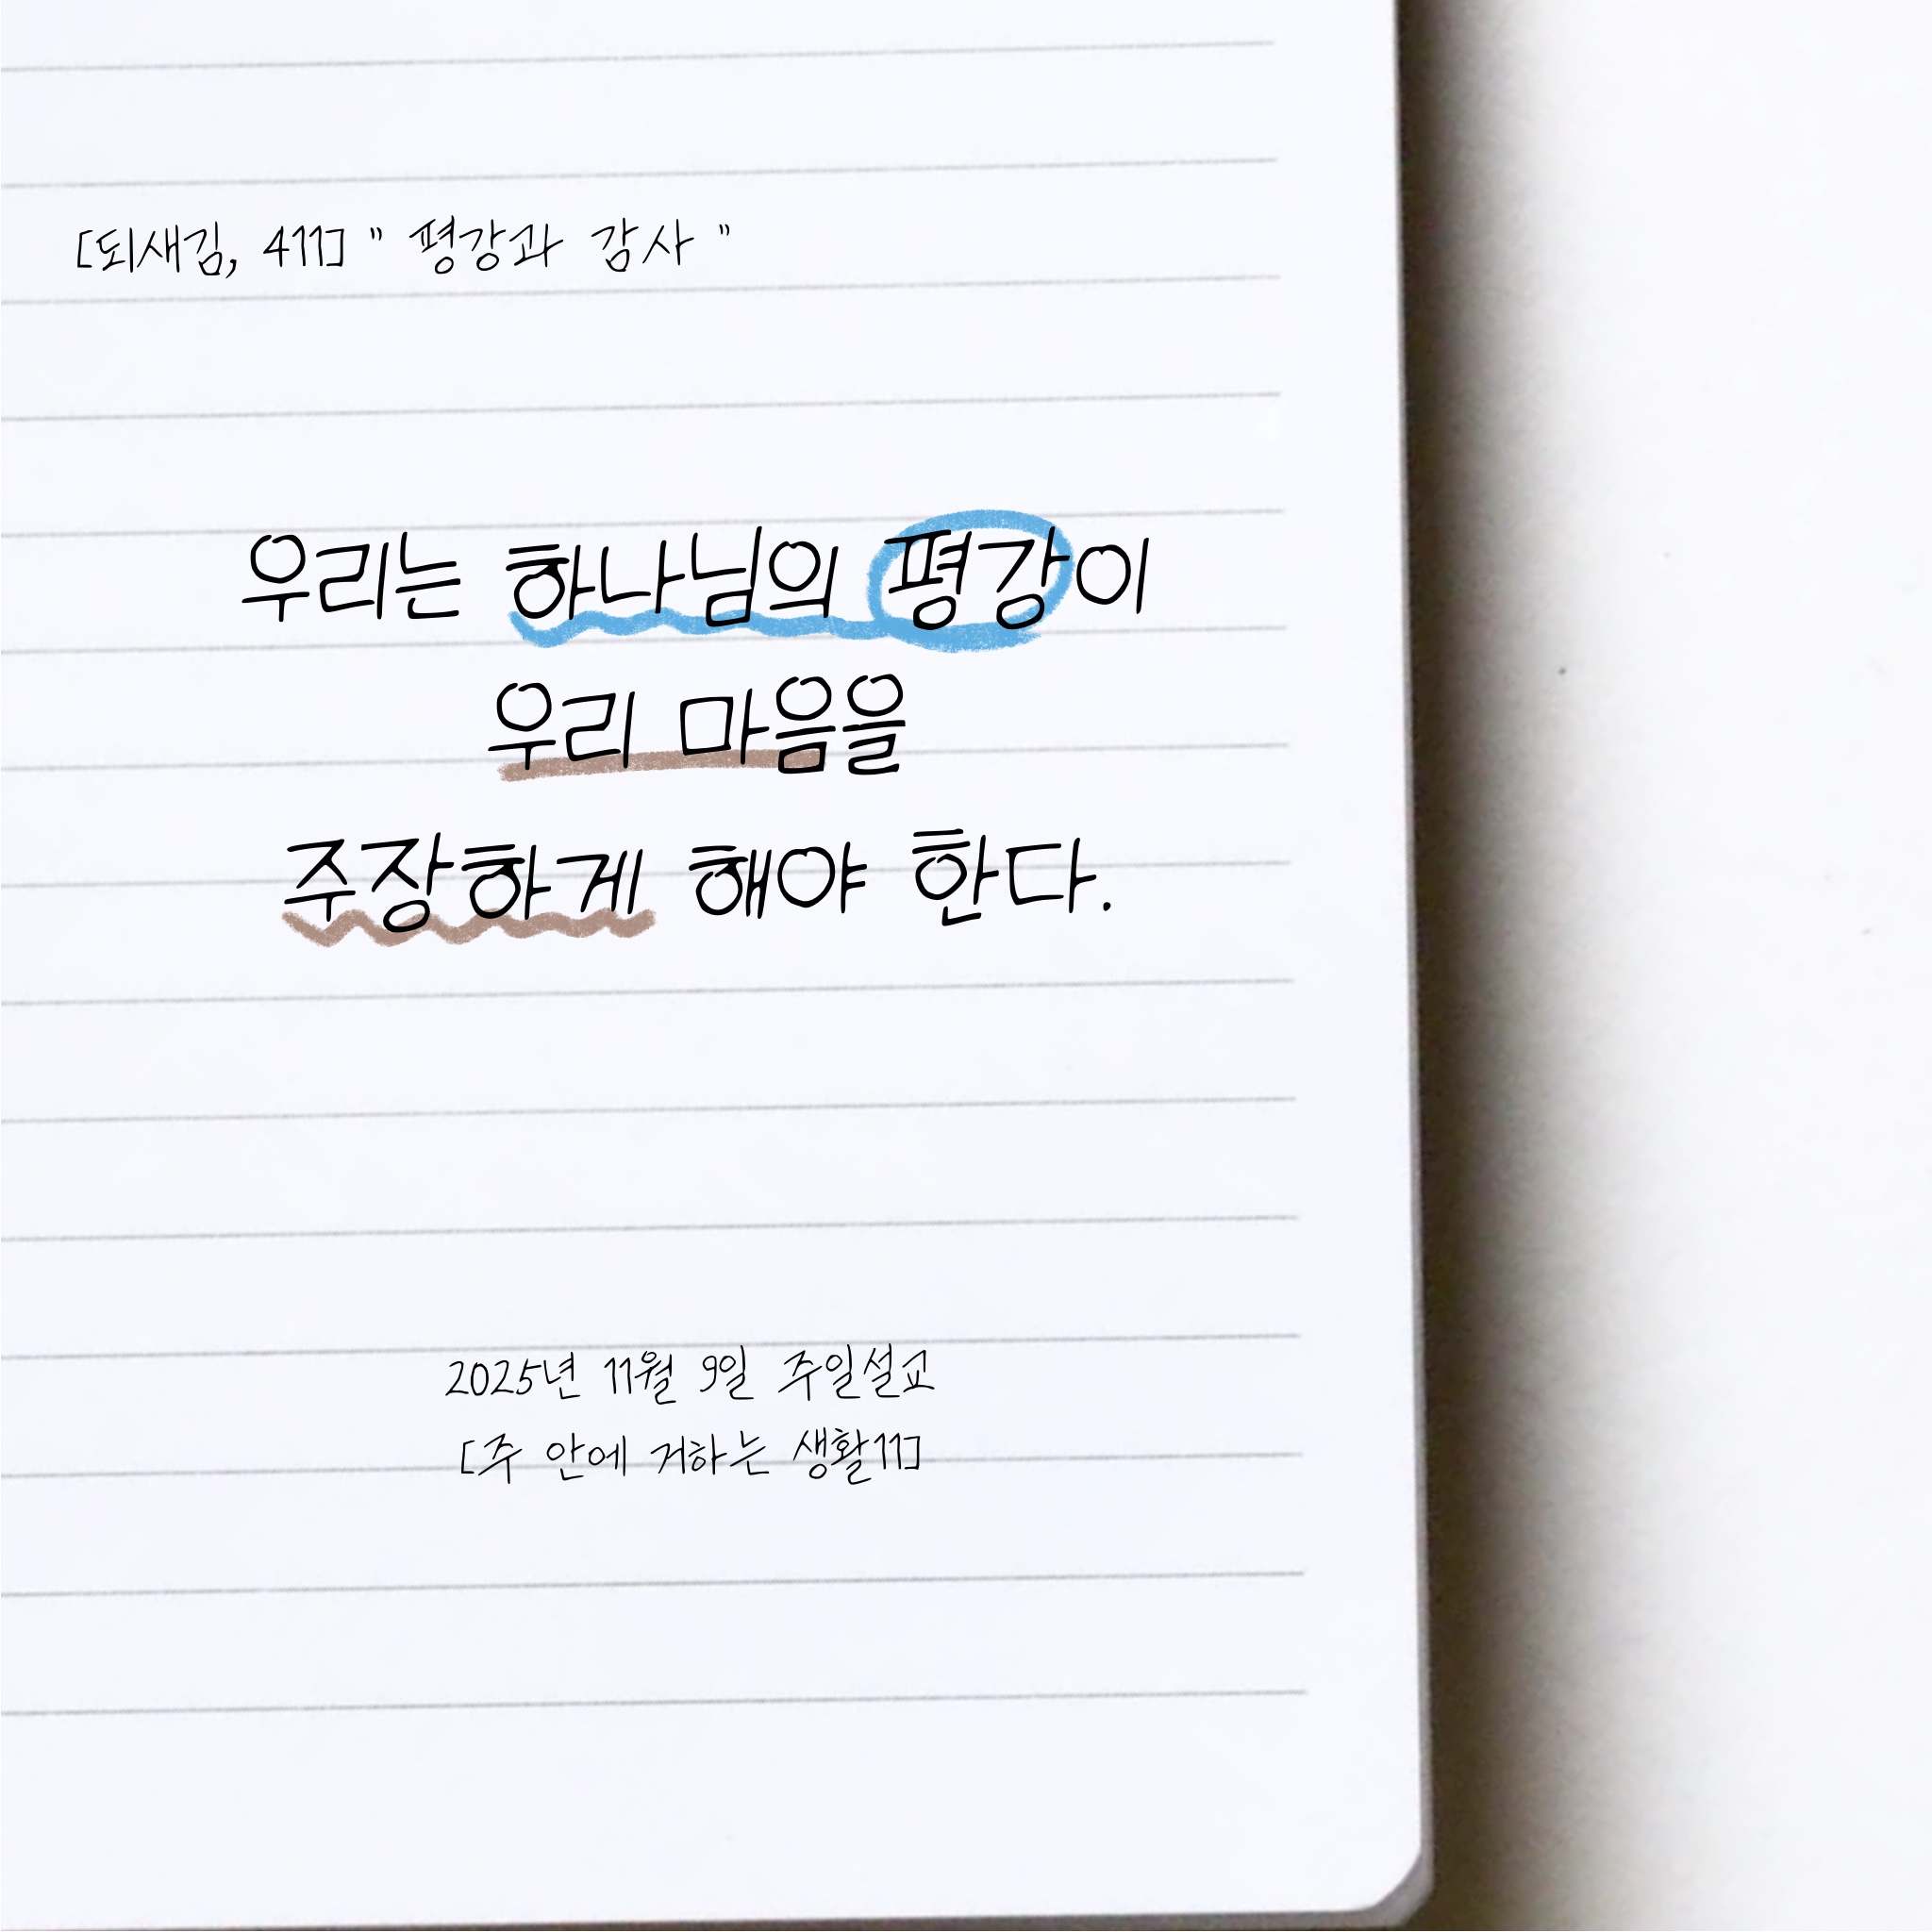 [되새김, 411] " 평강과 감사 "
우리는 하나님의 평강이
우리 마음을
주장하게 해야 한다.
2025년 11월 9일 주일설교
[주 안에 거하는 생활11]